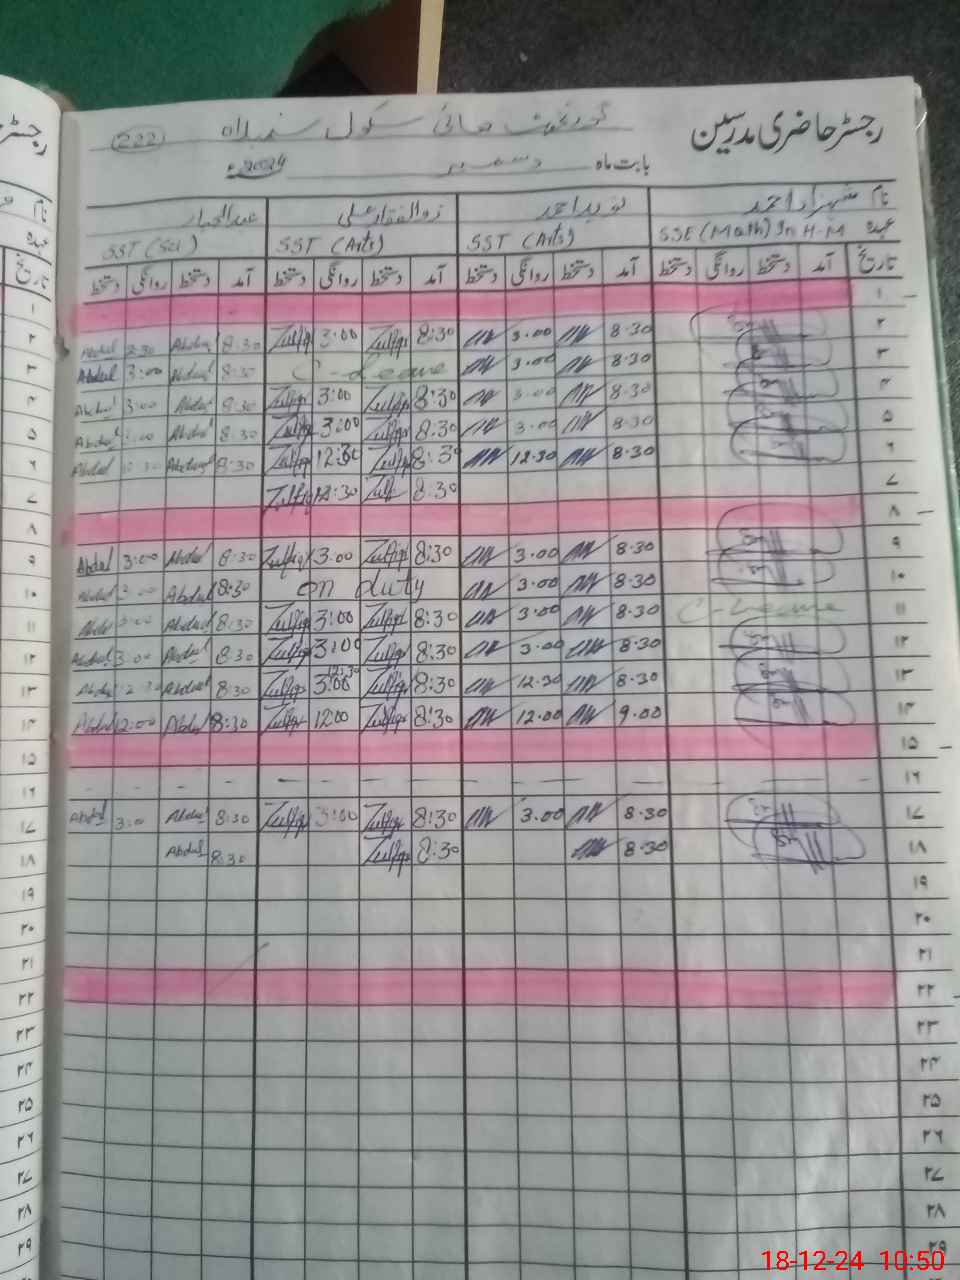 رجسٹر حاضری مدرسین
گورنمنٹ ہائی سکول
222
بابت ماہ دسمبر 2024ء
نام شہزاد احمد نوید احمد ذوالفقار علی عبدالجبار
عہدہ SSE (Math) In H-M SST (Arts) SST (Arts) SST (Sci)
تاریخ آمد دستخط روانگی دستخط آمد دستخط روانگی دستخط آمد دستخط روانگی دستخط آمد دستخط روانگی دستخط
۱
۲ 8.30 3.00 8:30 Zulfiqr 3:00 Zulfiqr 8:30 Abdul Abdul
۳ 8.30 3.00 C-Leave 8:30 Abdul 3:00 Abdul
۴ 8.30 3.00 8:30 Zulfiqr 3:00 Zulfiqr 8:30 Abdul 3:00 Abdul
۵ 8.30 3.00 8:30 Zulfiqr 3:00 Zulfiqr 8:30 Abdul Abdul
۶ 8.30 12.30 8:30 Zulfiqr 12:30 Zulfiqr 8:30 Abdul 12:30 Abdul
۷ 8:30 Zulf 12:30 Zulfiqr
۸
۹ 8.30 3.00 8:30 Zulfiqr 3:00 Zulfiqr 8:30 Abdul 3:00 Abdul
۱۰ 8.30 3.00 on duty 8:30 Abdul 3:00 Abdul
۱۱ C-Leave 8.30 3.00 8:30 Zulfiqr 3:00 Zulfiqr 8:30 Abdul 3:00 Abdul
۱۲ 8.30 3.00 8:30 Zulfiqr 3:00 Zulfiqr 8:30 Abdul 3:00 Abdul
۱۳ 8.30 12.30 8:30 Zulfiqr 12:30 3:00 Zulfiqr 8:30 Abdul 12:30 Abdul
۱۴ 9.00 12.00 8:30 Zulfiqr 12:00 Zulfiqr 8:30 Abdul 12:00 Abdul
۱۵
۱۶
۱۷ 8.30 3.00 8:30 Zulfiqr 3:00 Zulfiqr 8:30 Abdul 3:00 Abdul
۱۸ 8.30 8:30 Zulfiqr 8:30 Abdul
۱۹
۲۰
۲۱
۲۲
۲۳
۲۴
۲۵
۲۶
۲۷
۲۸
۲۹
18-12-24 10:50